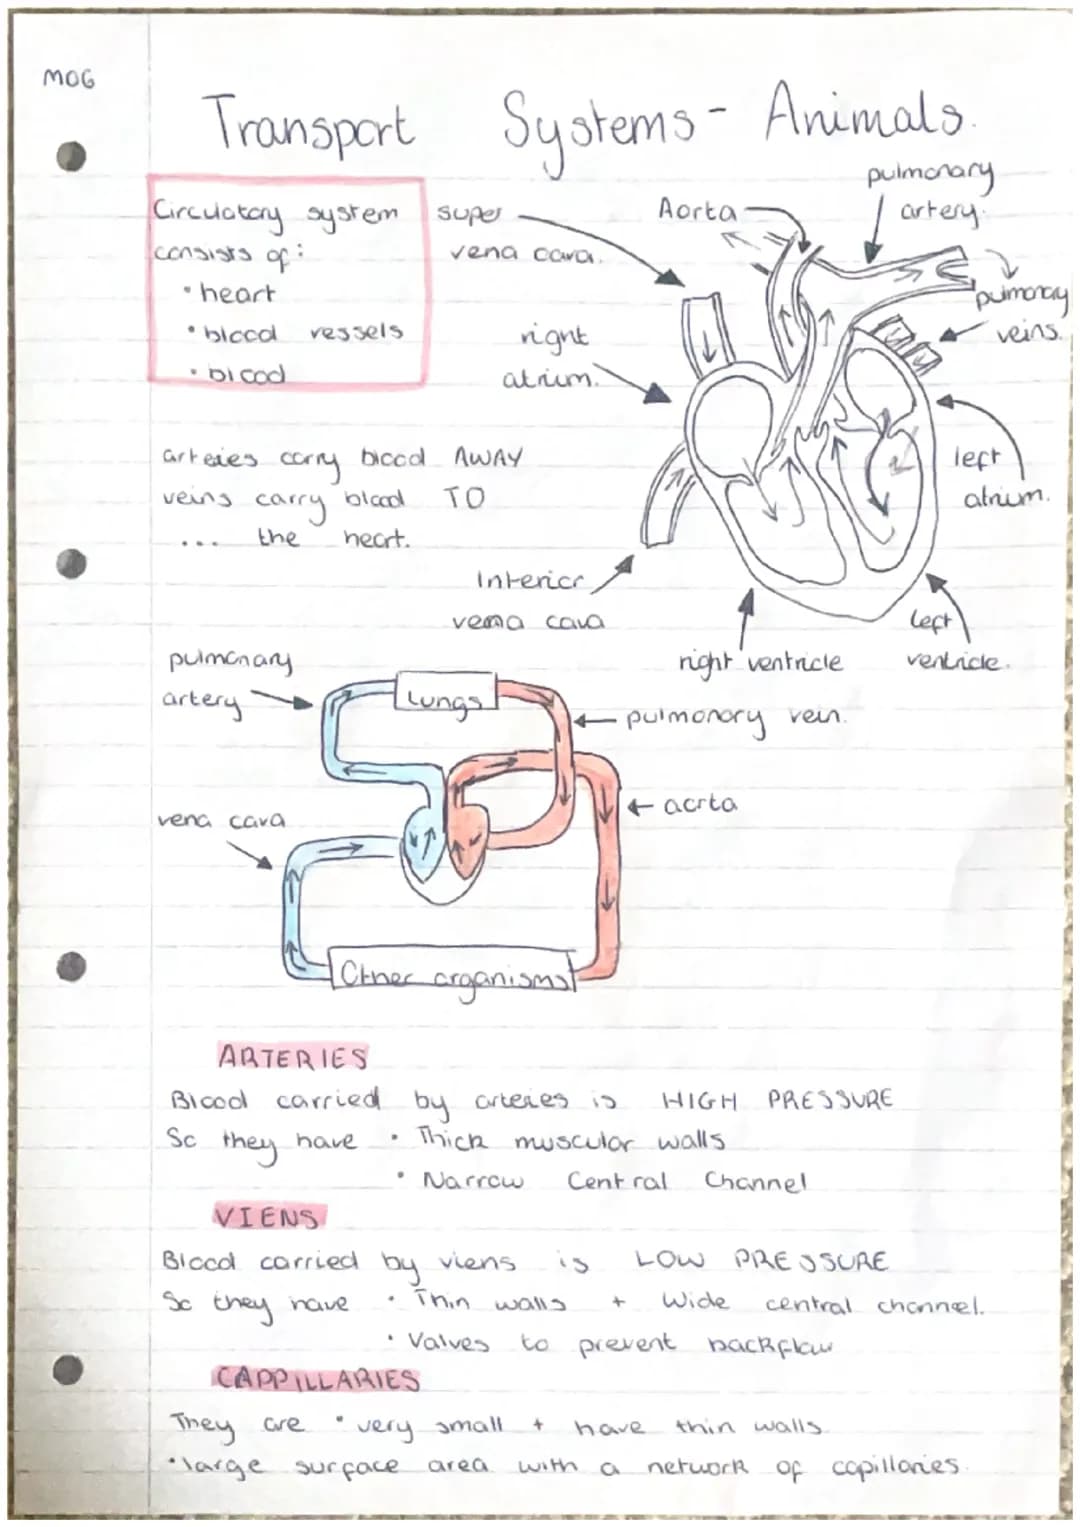 MOG
Transport Systems - Animals.
Circulatory system
consists of:
• heart
• blood vessels
• blood
super
vena cava.
Aorta
pulmonary
artery.
pulmonary
veins.
right
atrium.
left
atrium.
arteies carry blood AWAY
veins carry blood TO
... the heart.
Interior
vena cava
right ventricle
left
ventricle.
pulmonary
artery
Lungs
pulmonory vein.
aorta
vena cava
Other organisms
ARTERIES
Blood carried by arteies is HIGH PRESSURE
So they have • Thick muscular walls
• Narrow Central Channel
VIENS
Blood carried by viens is LOW PRESSURE
So they have • Thin walls + Wide central channel.
• Valves to prevent backflow
CAPPILLARIES
They are • very small + have thin walls.
• large surface area with a network of capillaries.